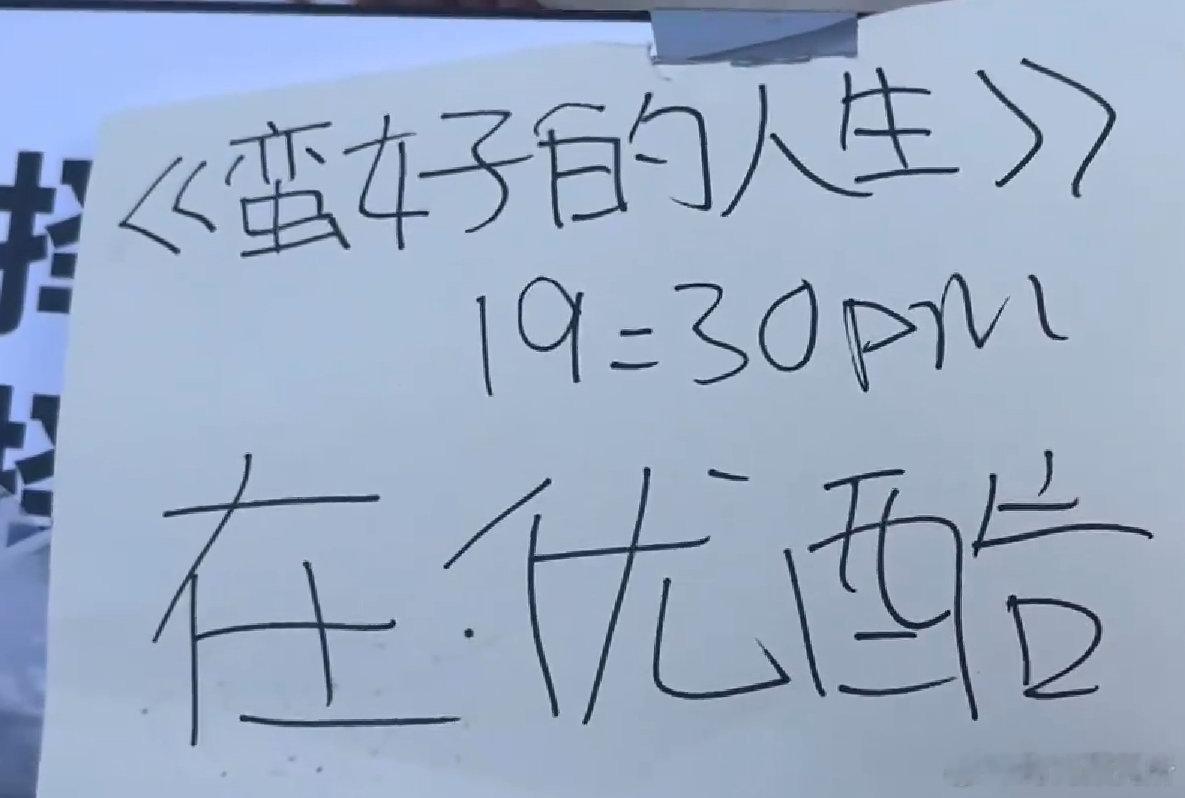 《蛮好的人生》
19:30pm
在·优酷